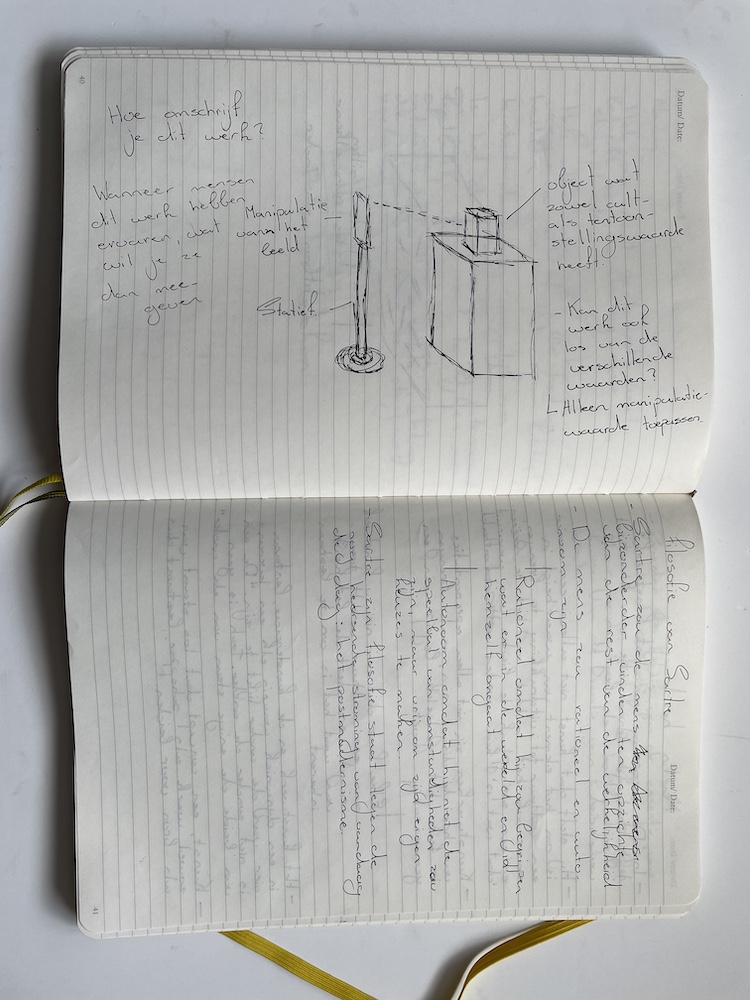 Datum/ Date:
Hoe omschrijf
je dit werk?
Wanneer mensen
dit werk hebben
ervaren, wat
wil je ze
dan mee-
geven
Manipulatie
van het
beeld
Statief
object wat
zowel cult-
als tentoon-
stellingswaarde
heeft
- Kan dit
werk ook
los van de
verschillende
waarden?
Alleen manipulatie-
waarde toepassen
40
Filosofie van Sartre
Datum/ Date:
- Sartre zou de mens
bijzonderder vinden ten opzichte
van de rest van de werkelijkheid
- De mens zou rationeel en auto-
noom zijn
Rationeel omdat hij zou begrijpen
wat er in de wereld en in
hemzelf omgaat
Autonoom omdat hij niet de
speelbal van omstandigheden zou
zijn, maar vrij om zijn eigen
keuzes te maken.
- Sartre zijn filosofie staat tegen de
nog heersende stroming van vandaag
de dag: het postmodernisme
41